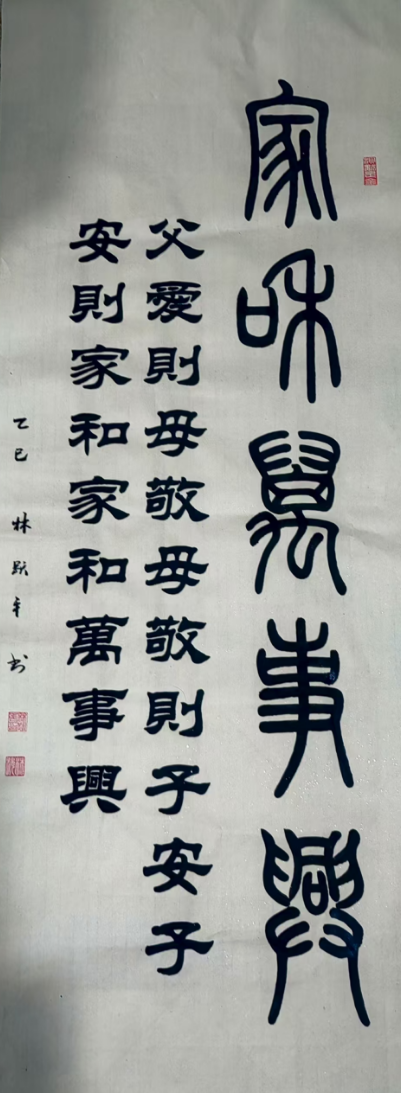 家和萬事興
父愛則母敬母敬則子安子
安則家和家和萬事興
乙巳 林跃平书